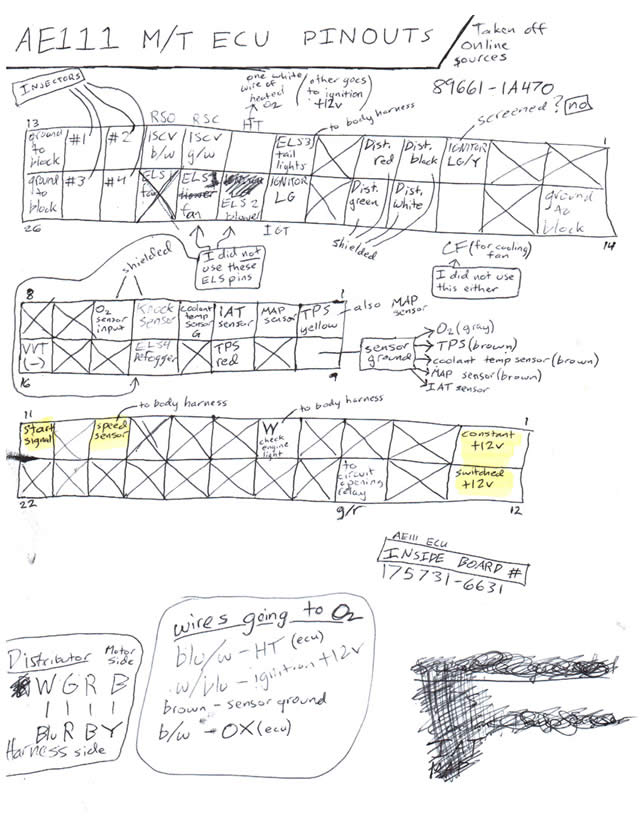 AE111 M/T ECU PINOUTS
Taken off
online
sources
89661-1A470
INJECTORS
one white
wire of
heated
O2
(other goes
to ignition
+12v)
to body harness
screened? no
RSO RSC HT
13
1
ground
to
block
#1
#2
ISCV
b/w
ISCV
g/w
ELS3
tail
lights
Dist.
red
Dist.
black
IGNITOR
LG/Y
ground
to
block
#3
#4
ELS1
fan
ELS
fan
ELS 2
blower
IGNITOR
LG
Dist.
green
Dist.
white
ground
to
block
26
14
IGT
shielded
shielded
I did not
use these
ELS pins
CF (for cooling
fan)
I did not use
this either
8
1
O2
sensor
input
Knock
sensor
coolant
temp
sensor
G
IAT
sensor
MAP
sensor
TPS
yellow
also MAP
sensor
VVT
(-)
ELS4
defogger
TPS
red
16
9
sensor
ground
O2 (gray)
TPS (brown)
coolant temp sensor (brown)
MAP sensor (brown)
IAT sensor
to body harness
to body harness
11
1
start
signal
speed
sensor
W
check
engine
light
constant
+12v
to
circuit
opening
relay
switched
+12v
22
g/r
12
AE111 ECU
INSIDE BOARD #
175731-6631
Distributor
Motor
side
W G R B
Blu R B Y
Harness side
wires going to O2
blu/w - HT (ecu)
w/blu - ignition +12v
brown - sensor ground
b/w - OX (ecu)
IAT
MAP